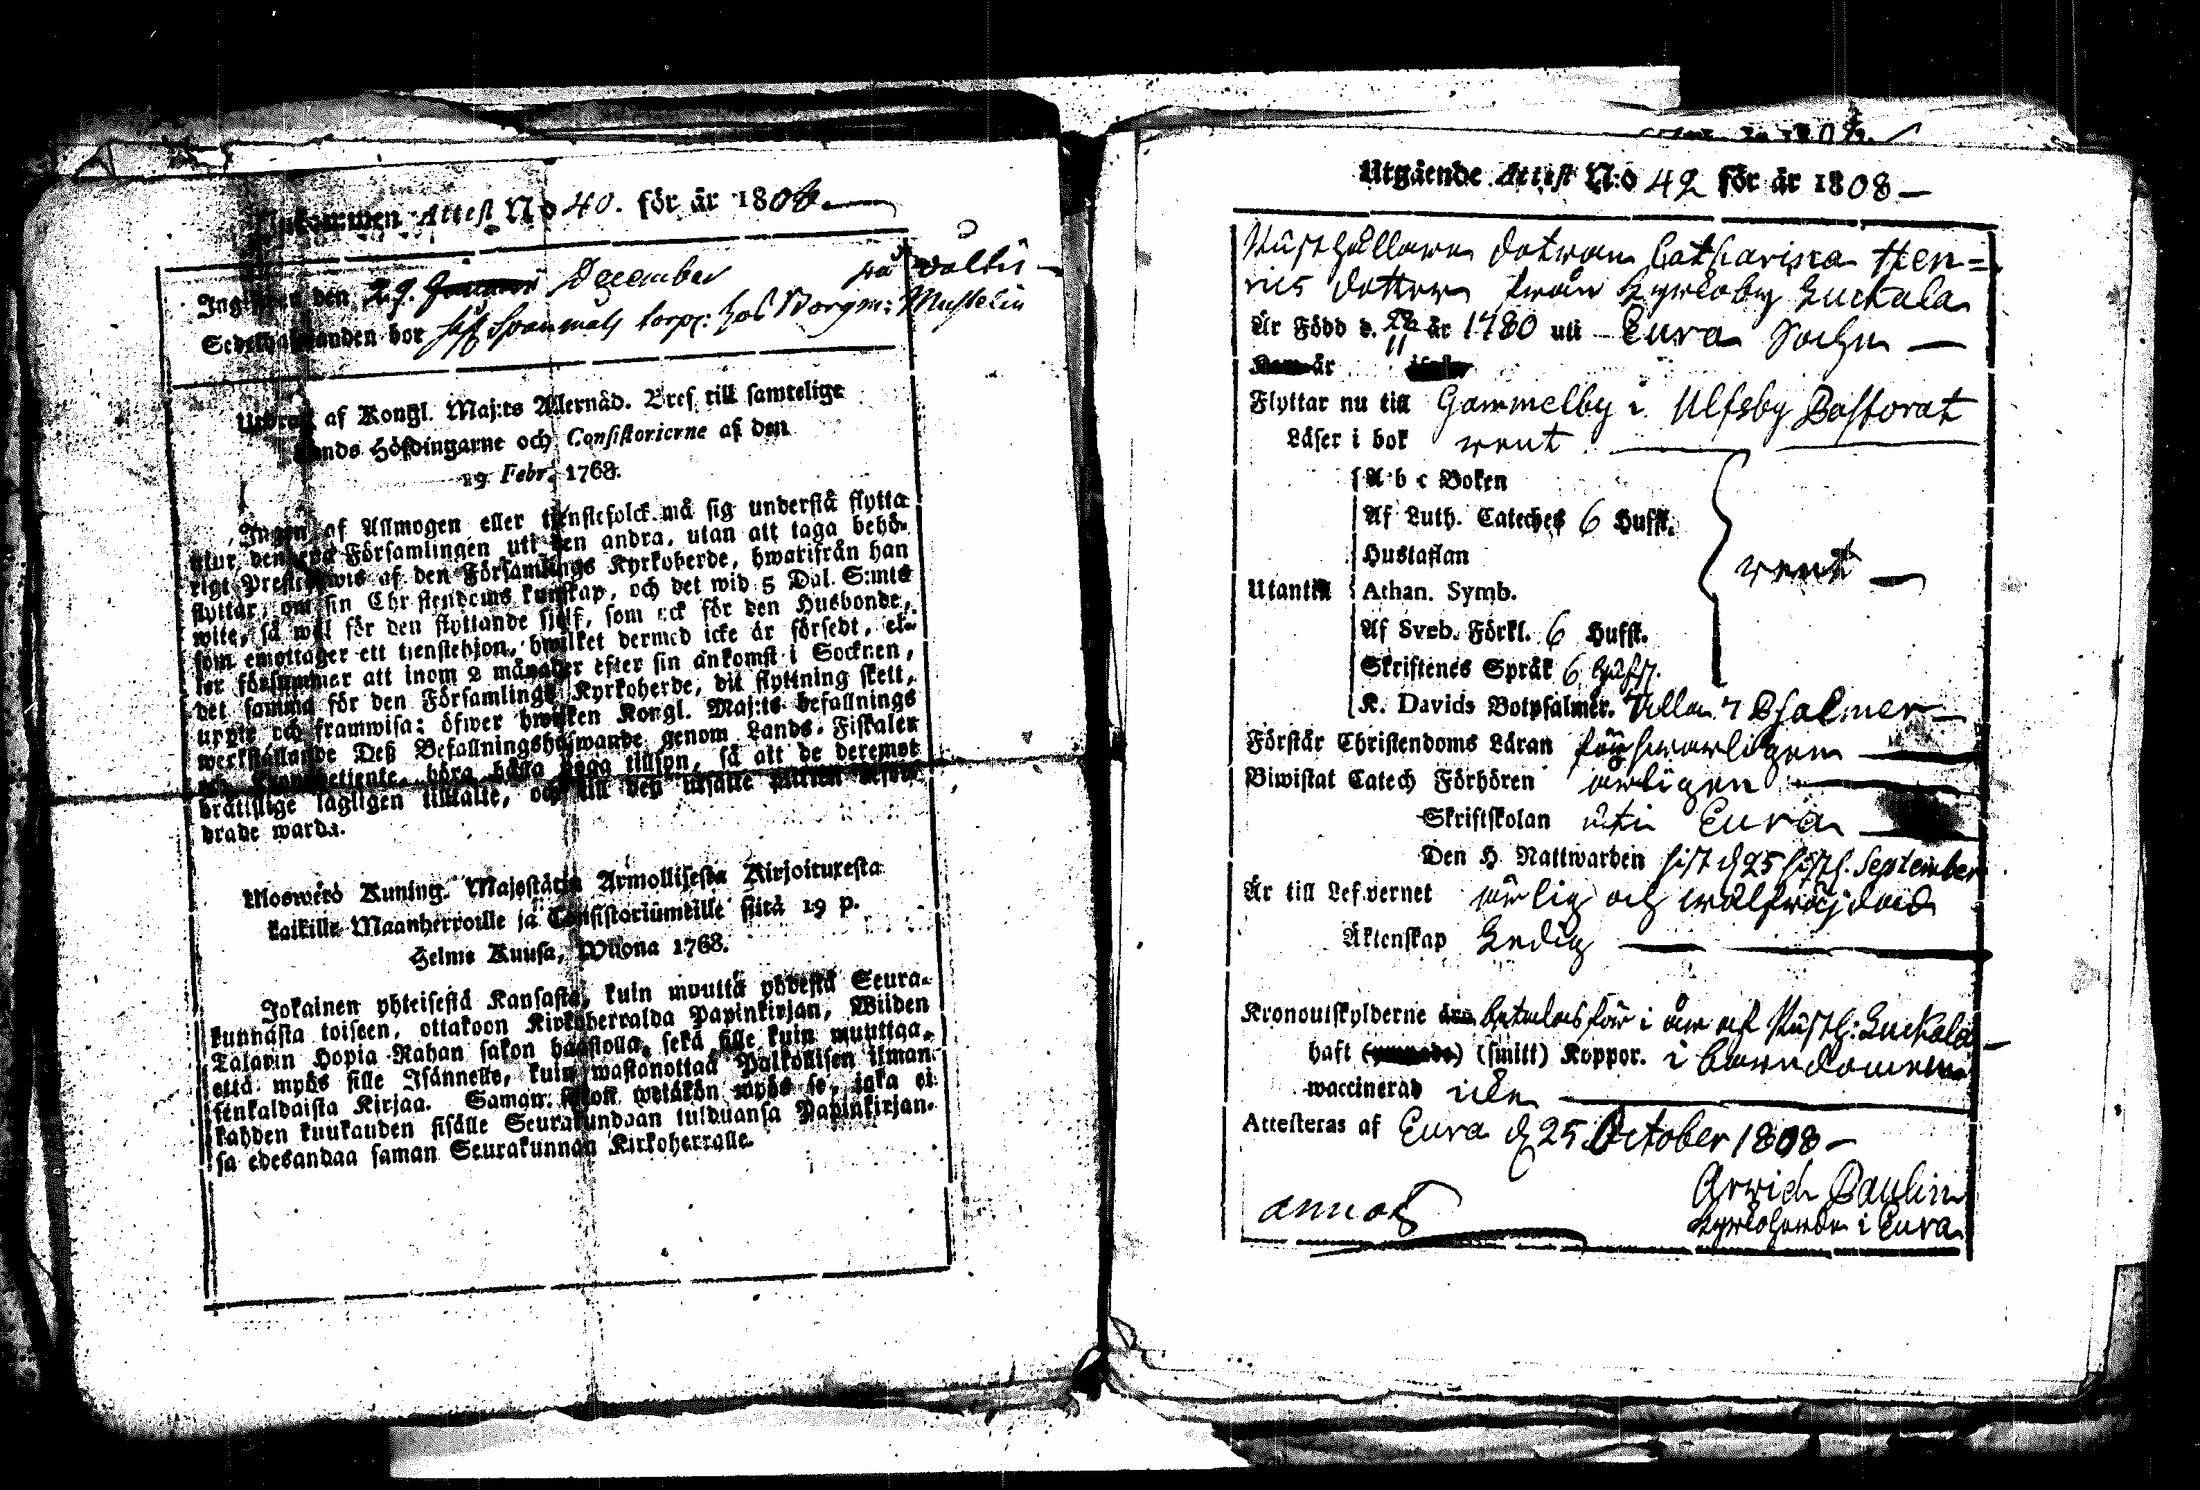 Inkommen Attest No 40. för år 1808.
Inglefwen den 29. December
på Waltti
Sedelhafwanden bor hos Borgm: Mustelin
Utdrag af Kongl. Maj:ts Allernåd. Bref till samtelige
Lands Höfdingarne och Consistorierne af den
19 Febr. 1768.
Ingen af Allmogen eller tjenstefolck må sig understå flytta
utur den ena Församlingen uti den andra, utan att taga behö-
rigt Prestebewis af den Församlings Kyrkoherde, hwarifrån han
flyttar, om sin Christendoms kunskap, och det wid 5 Dal. S:mts
wite, så wäl för den flyttande sjelf, som ock för den Husbonde,
som emottager ett tienstehjon, hwilket dermed icke är försedt, el-
ler försummer att inom 2 månader efter sin ankomst i Socknen,
det samma för den Församlings Kyrkoherde, dit flyttning skett,
uppte och framwisa: öfwer hwilken Kongl. Maj:ts befallnings
werkställande Deß Befallningshafwande genom Lands-Fiskaler
och Kronobetiente, böra hålla noga tillsyn, så att de deremot
brätslige lagligen tilltalte, och till deß utsatte
drade warda.
Uloswärs Kuning. Majestätin Armollisesta Kirjoituxesta
kaikille Maanherroille ja Consistoriumeille siitä 19 p.
Helme Kuusa, Wuona 1768.
Jokainen yhteisestä Kansasta, kuin muuttä yhdestä Seura-
kunnasta toiseen, ottakoon Kirkoherralda Papinkirjan, Wiiden
Talarin Hopia Rahan sakon haastolla, sekä sille kuin muuttaa,
että myös sille Isännelle, kuin wastanottaa Palkollisen ilman
senkaldaista Kirjaa. Saman sakon wetäkön myös se, joka ei
kahden kuukauden sisälle Seurakundaan tulduansa Papinkirjan-
sa edesandaa saman Seurakunnan Kirkoherralle.
Utgående Attest N:o 42 för år 1808
Rusthållare dotran Catharina Hen=
rics dotter från Kyrkoby Luckala
Är Född d. 28/11 år 1780 uti Eura Sockn
är
Flyttar nu till Gammelby i Ulfsby Pastorat
Läser i bok rent
A b c Boken
Af Luth. Cateches 6 Hufst.
Hustaflan
Utantill Athan. Symb. rent
Af Sveb. Förkl. 6 Hufst.
Skriftenes Språk 6 Hufst.
K. Davids Botpsalmer. Alla 7 Psalmer
Förstår Christendoms Läran försvarligen
Biwistat Catech Förhören årligen
Skriftskolan uti Eura
Den H. Nattwarden sist d 25 September
Är till Lefvernet ärlig och wälfräjdad
Äktenskap Ledig
Kronoutskylderne betalas för i år af Rusth: Luckala
haft (smitt) Koppor. i barndomen
waccinerad icke
Attesteras af Eura d 25 October 1808
Arvid Paulin
Kyrkoherde i Eura
annot